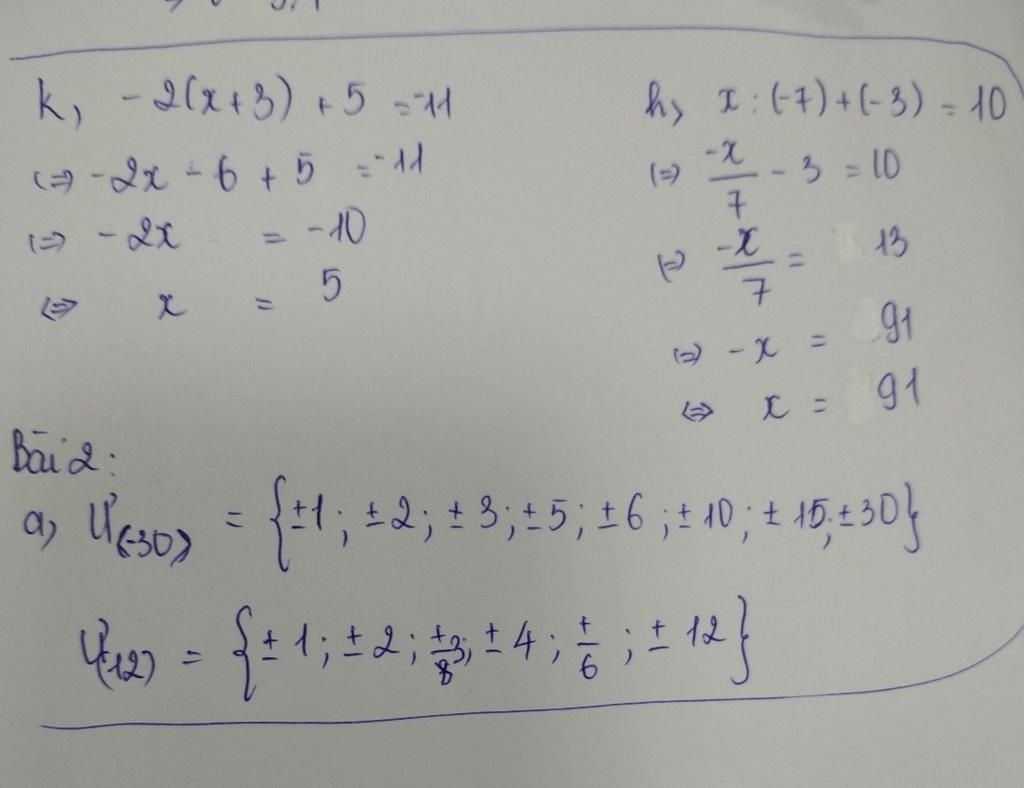 k, -2(x+3) + 5 = -11
⇔ -2x - 6 + 5 = -11
⇔ -2x = -10
⇔ x = 5
h, x : (-7) + (-3) = 10
⇔ -x/7 - 3 = 10
⇔ -x/7 = 13
⇔ -x = 91
⇔ x = 91
Bài 2:
a, Ư(-30) = {±1; ±2; ±3; ±5; ±6; ±10; ±15; ±30}
Ư(-12) = {±1; ±2; ±3; ±4; ±6; ±12}